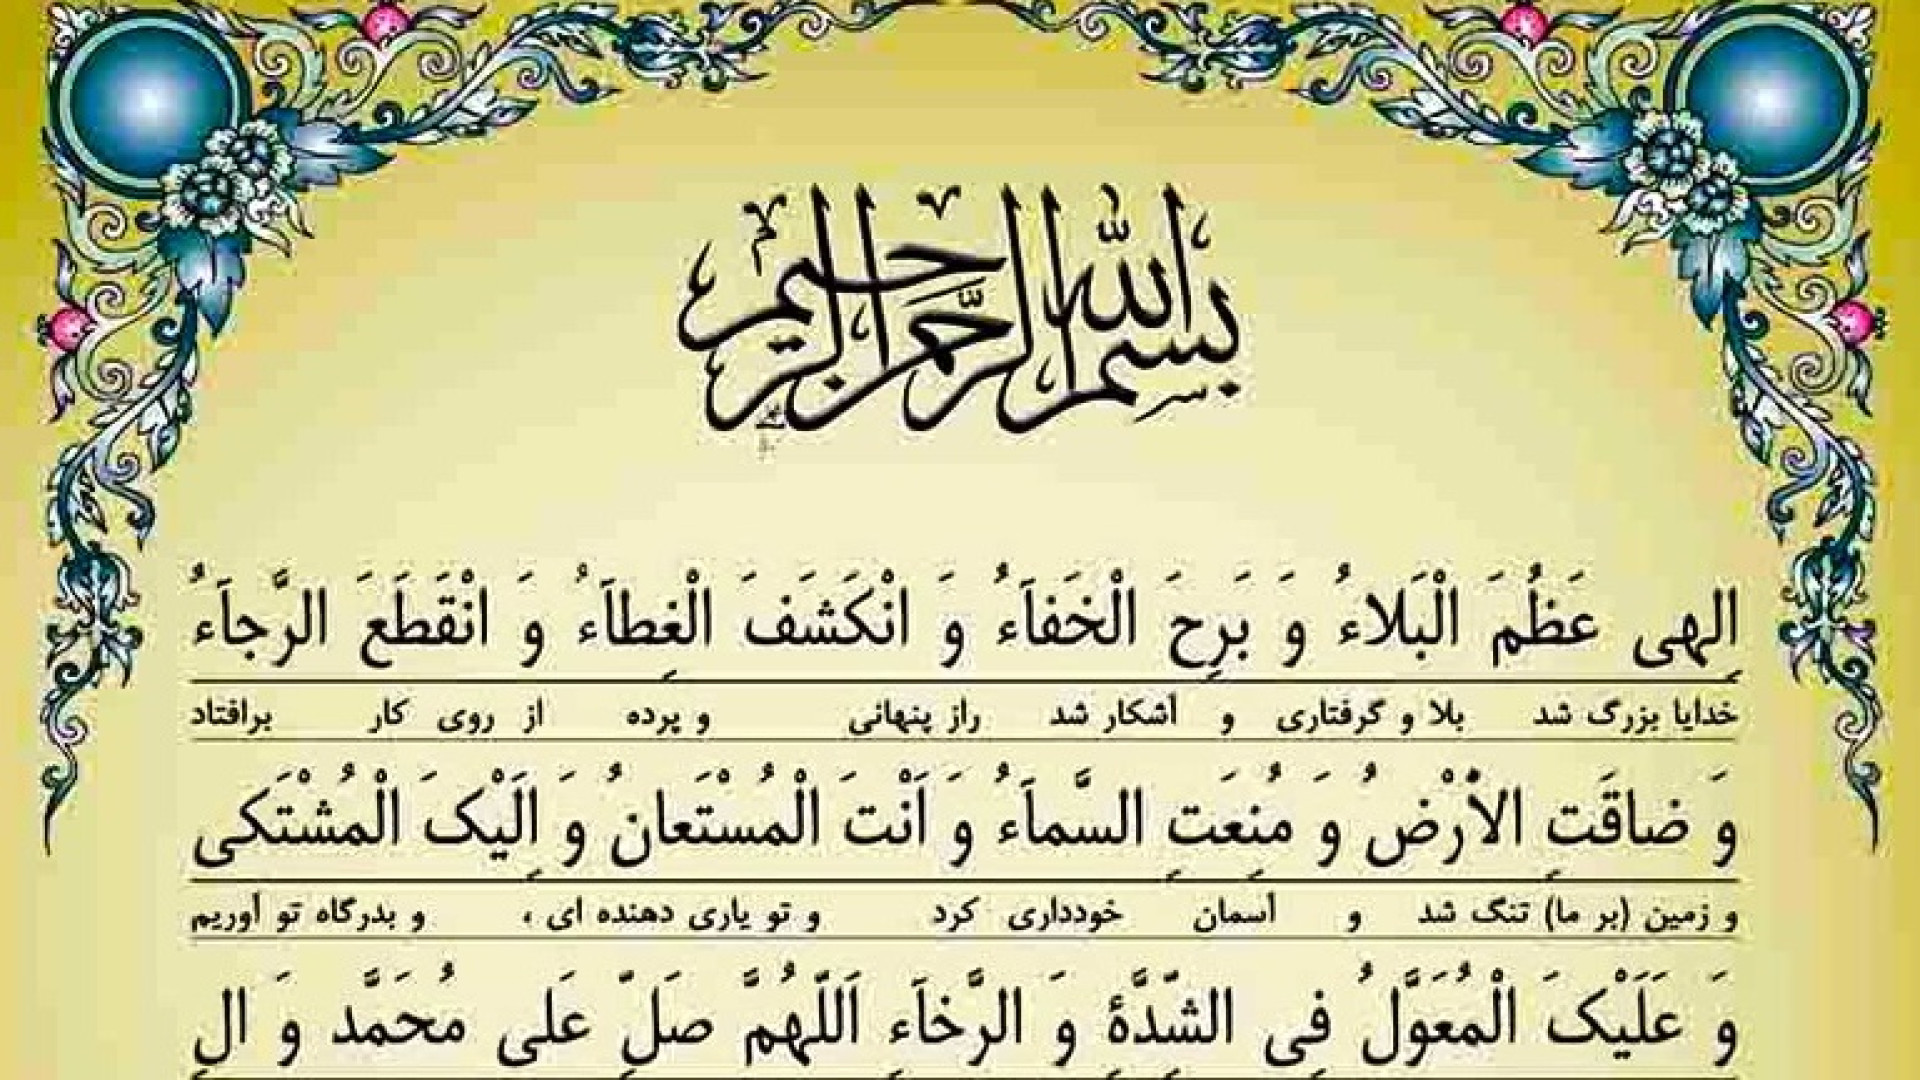 بسم الله الرحمن الرحیم
اِلهی عَظُمَ الْبَلاءُ وَ بَرِحَ الْخَفاَّءُ وَ انْکَشَفَ الْغِطاَّءُ وَ انْقَطَعَ الرَّجاَّءُ
خدایا بزرگ شد بلا و گرفتاری و آشکار شد راز پنهانی و پرده از روی کار برافتاد
وَ ضاقَتِ الاَْرْضُ وَ مُنِعَتِ السَّماَّءُ وَ اَنْتَ الْمُسْتَعانُ وَ اِلَیْکَ الْمُشْتَکی
و زمین (بر ما) تنگ شد و آسمان خودداری کرد و تو یاری دهنده ای ، و بدرگاه تو آوریم
وَ عَلَیْکَ الْمُعَوَّلُ فِی الشِّدَّةِ وَ الرَّخاَّءِ اَللّهُمَّ صَلِّ عَلی مُحَمَّد وَ الِ